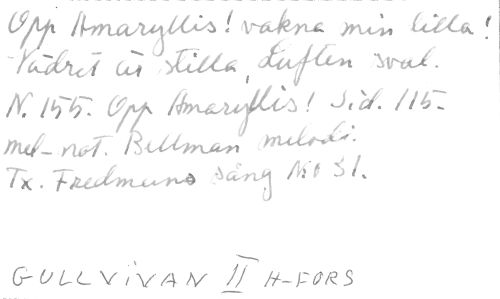 Opp Amaryllis! vakna min lilla!
Vädret är stilla, Luften sval.
N. 155. Opp Amaryllis! Sid. 115-
mel-not. Bellman melodi.
Tx. Fredmans sång No 31.
GULLVIVAN II H-FORS